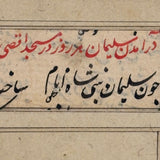 در آمدن سلیمان هر روز در مسجد اقصی
چون سلیمان نبی شاه انام ساخت